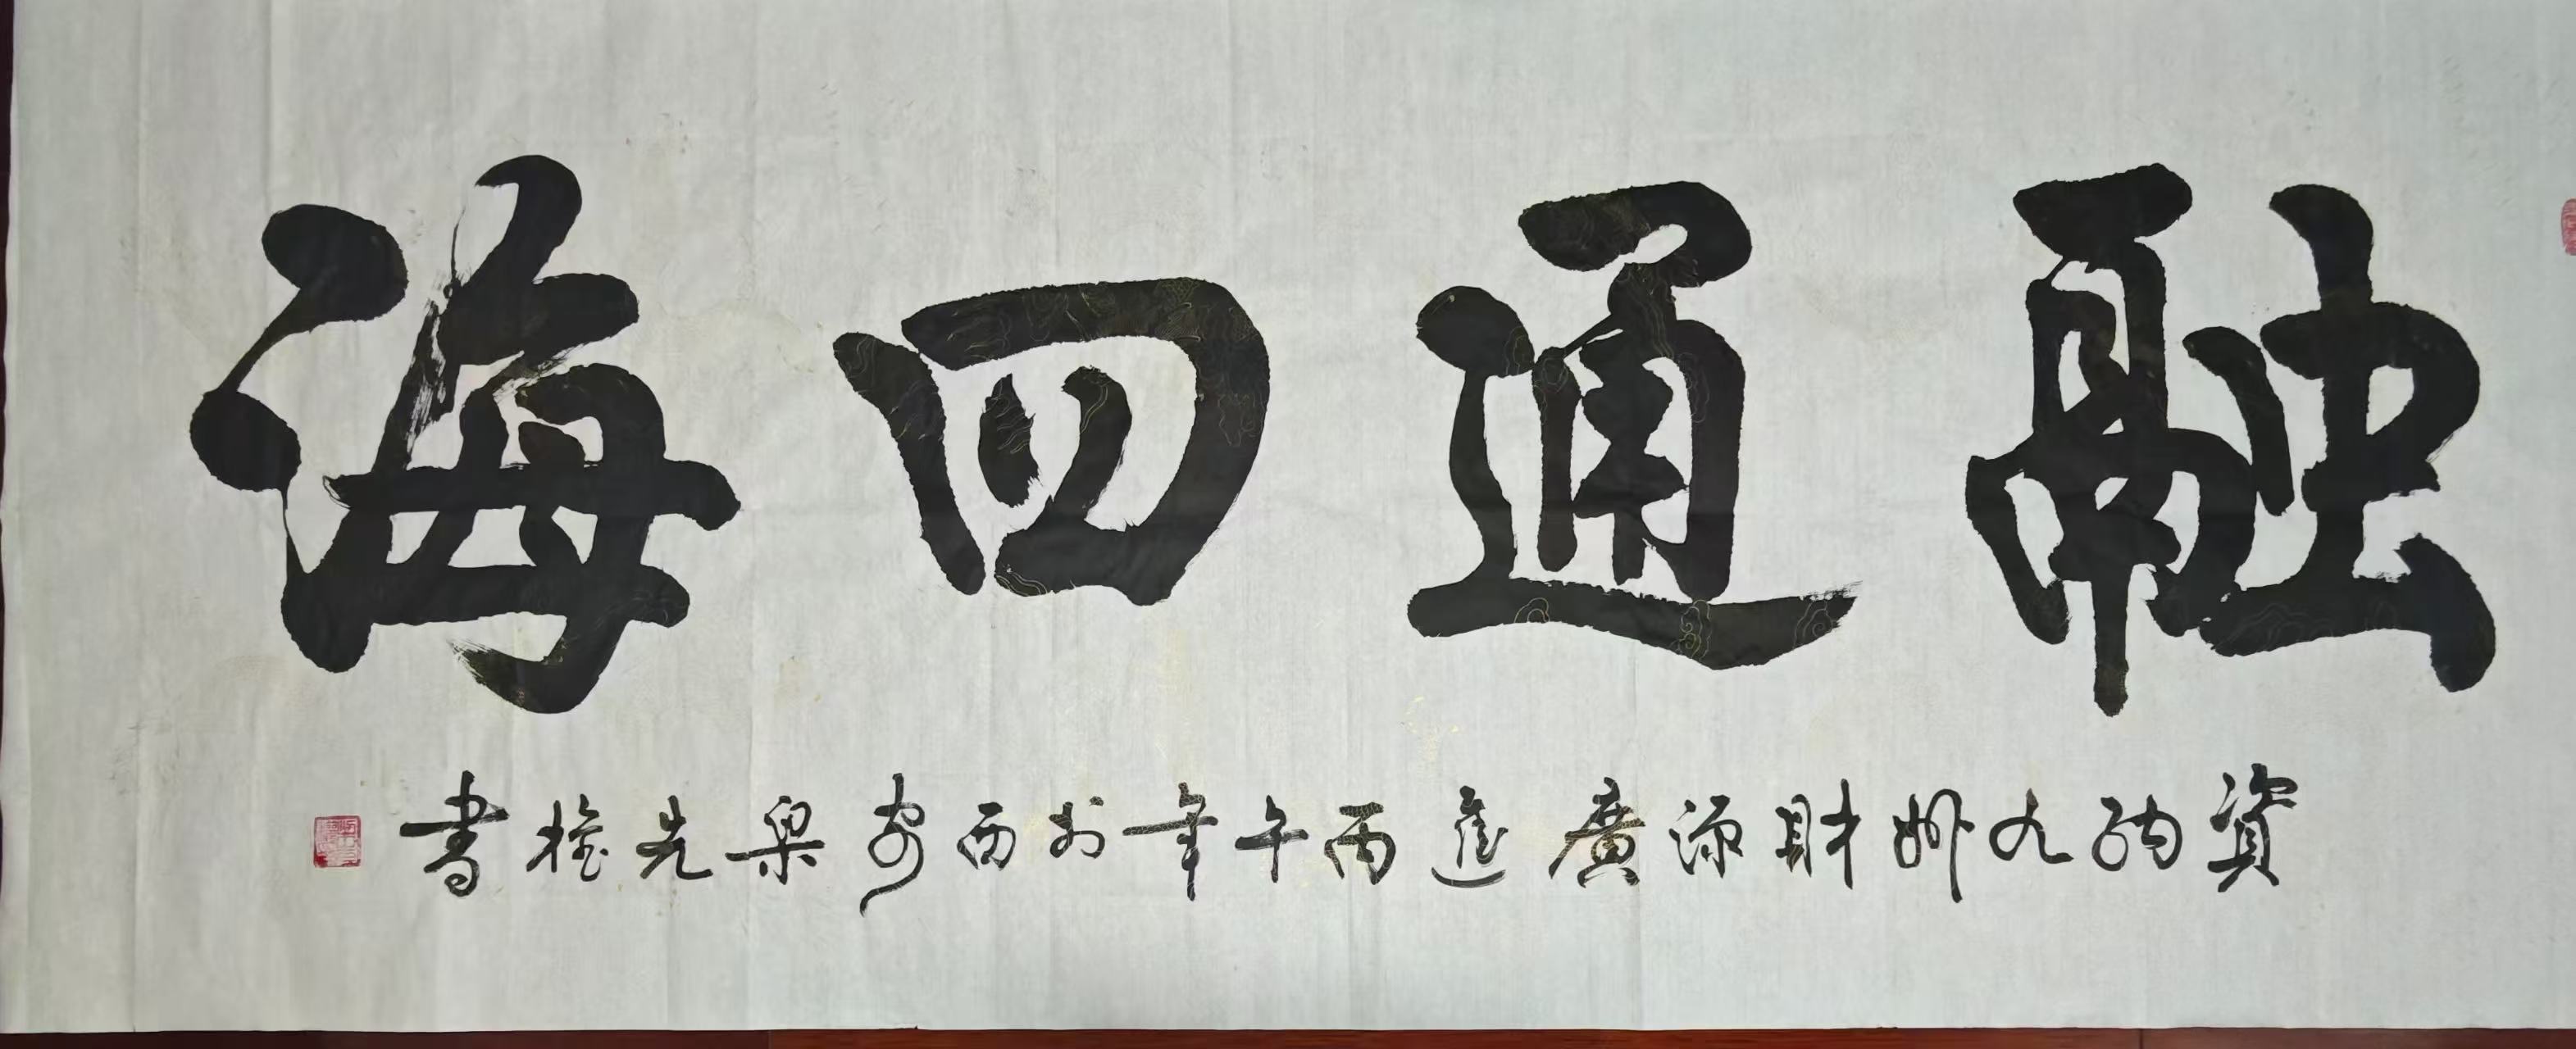 融通四海
資納九州財源廣進丙午年於西安梁先權書